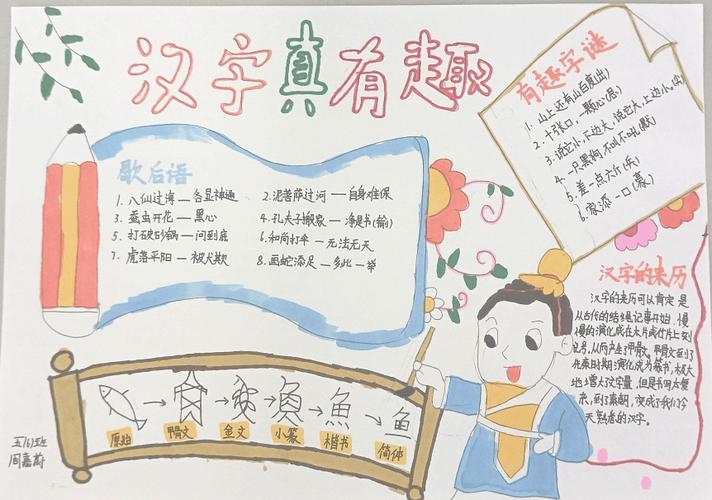 汉字真有趣
歇后语
1. 八仙过海—各显神通
2. 泥菩萨过河—自身难保
3. 蚕虫开花—黑心
4. 孔夫子搬家—净是书(输)
5. 打破砂锅—问到底
6. 和尚打伞—无法无天
7. 虎落平阳—被犬欺
8. 画蛇添足—多此一举
有趣字谜
1. 山上还有山百度(出)
2. 十张口,一颗心(思)
3. 说它小,下边大,说它大,上边小(尖)
4. 一只黑狗,不叫不吼(默)
5. 差一点六斤(兵)
6. 家添一口(豪)
汉字的来历
汉字的来历可以肯定是
从古代的结绳记事开始,慢
慢的演化成在木片或竹片上刻
记号,从而产生了甲骨文。甲骨文到了
先秦时期演化成为篆书,极大
地丰富了汉字量,但是书写方便
来,到了秦朝,演变成了我们今
天熟悉的汉字。
原始
甲骨文
金文
小篆
楷书
简体
魚
鱼
五(6)班
周嘉蔚